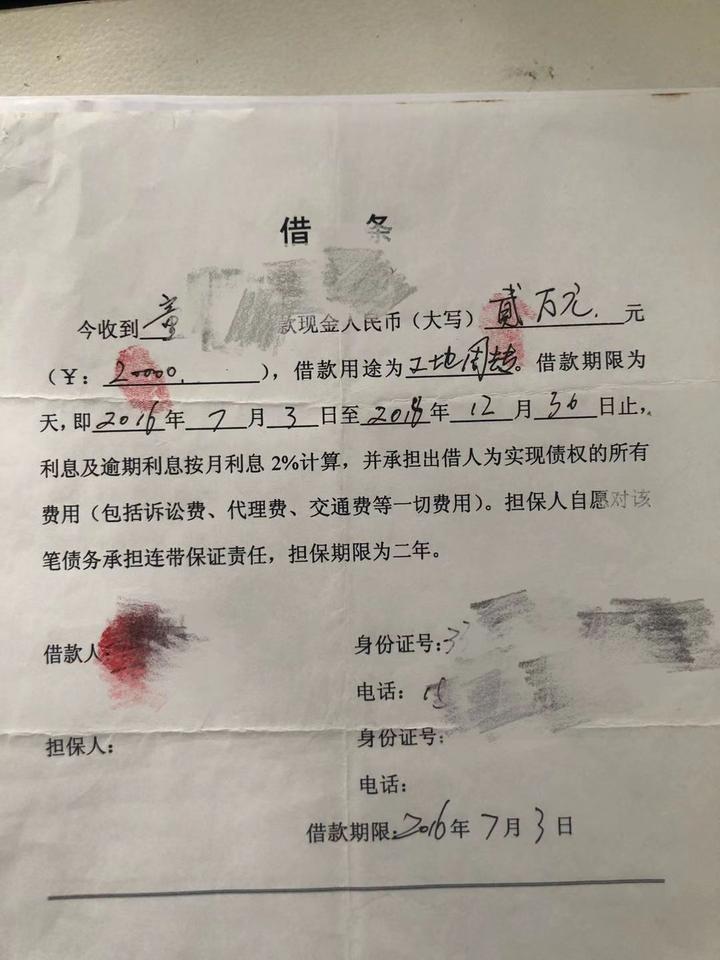 借 条
今收到 童 款现金人民币（大写） 貳万元. 元
（¥： 20000. ），借款用途为工地周转。借款期限为
天，即 2016 年 7 月 3 日至 2018 年 12 月 30 日止，
利息及逾期利息按月利息 2%计算，并承担出借人为实现债权的所有
费用（包括诉讼费、代理费、交通费等一切费用）。担保人自愿对该
笔债务承担连带保证责任，担保期限为二年。
借款人 身份证号:3
电话： 15
担保人： 身份证号:
电话：
借款期限: 2016 年 7 月 3 日